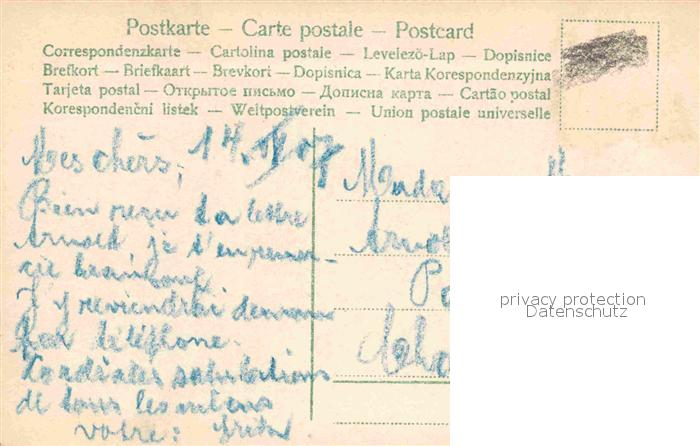 Postkarte — Carte postale — Postcard
Correspondenzkarte — Cartolina postale — Levelező-Lap — Dopisnice
Brefkort — Briefkaart — Brevkort — Dopisnica — Karta Korespondenzyjna
Tarjeta postal — Открытое письмо — Дописна карта — Cartão postal
Korespondenční listek — Weltpostverein — Union postale universelle
Mes chèrs, 14. 07
Bien reçu ta lettre
Arnold je t'en remer-
cie beaucoup.
J'y reviendrai demain
par téléphone.
Cordiales salutations
de tous les miens
votre:
Mada
Arno
privacy protection
Datenschutz